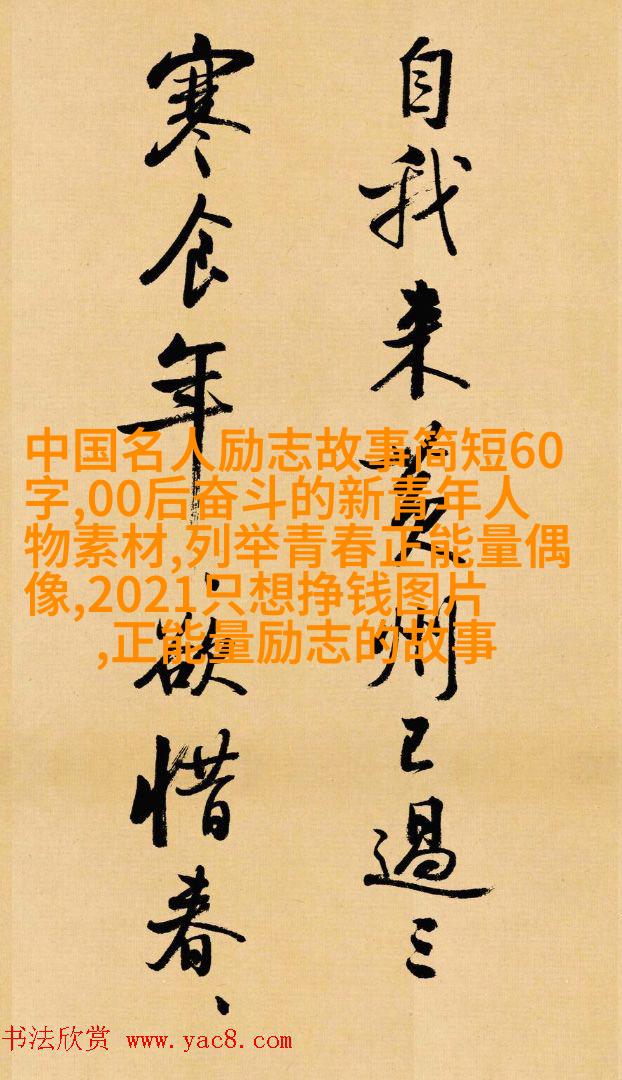 自我来黄州已過三
寒食年、欲惜春、
中国名人励志故事简短60
字,00后奋斗的新青年人
物素材,列举青春正能量偶
像,2021只想挣钱图片
,正能量励志的故事
书法欣赏 www.yac8.com